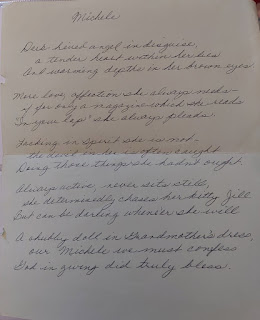 Michele
Dear haired angel in disguise,
a tender heart within her lies
And warming depths in her brown eyes
More love, affection she always needs -
if for only a magazine which she reads
"In your lap" she always pleads.
Lacking in spirit she is not,
the devil in her is often caught
Doing those things she hadn't ought.
Always active, never sits still,
she determinedly chases her kitty Jill
But can be darling whenever she will
A chubby doll in Grandmother's dress,
our Michele we must confess
God in giving did truly bless.